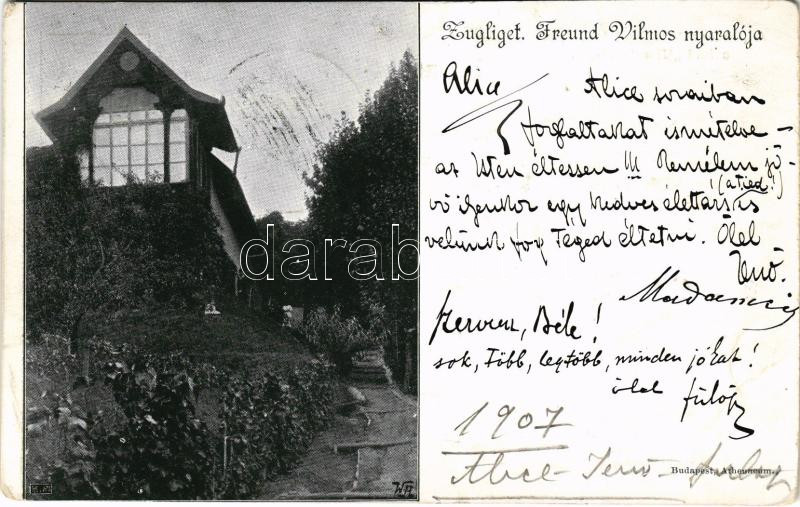 Zugliget. Freund Vilmos nyaralója
Alice
Alice soraiban
foglaltakat ismételve -
az Isten éltessen !!! Remélem jö-
vő ilyenkor egy kedves élettárs is
(a tied!)
velünk fog Téged éltetni. Ölel
Jenő
Servus, Béla!
sok, több, legtöbb, minden jókat!
ölel Fülöp
1907
Alice - Jenő - Fülöp
Budapest, Athenaeum.
darabanth